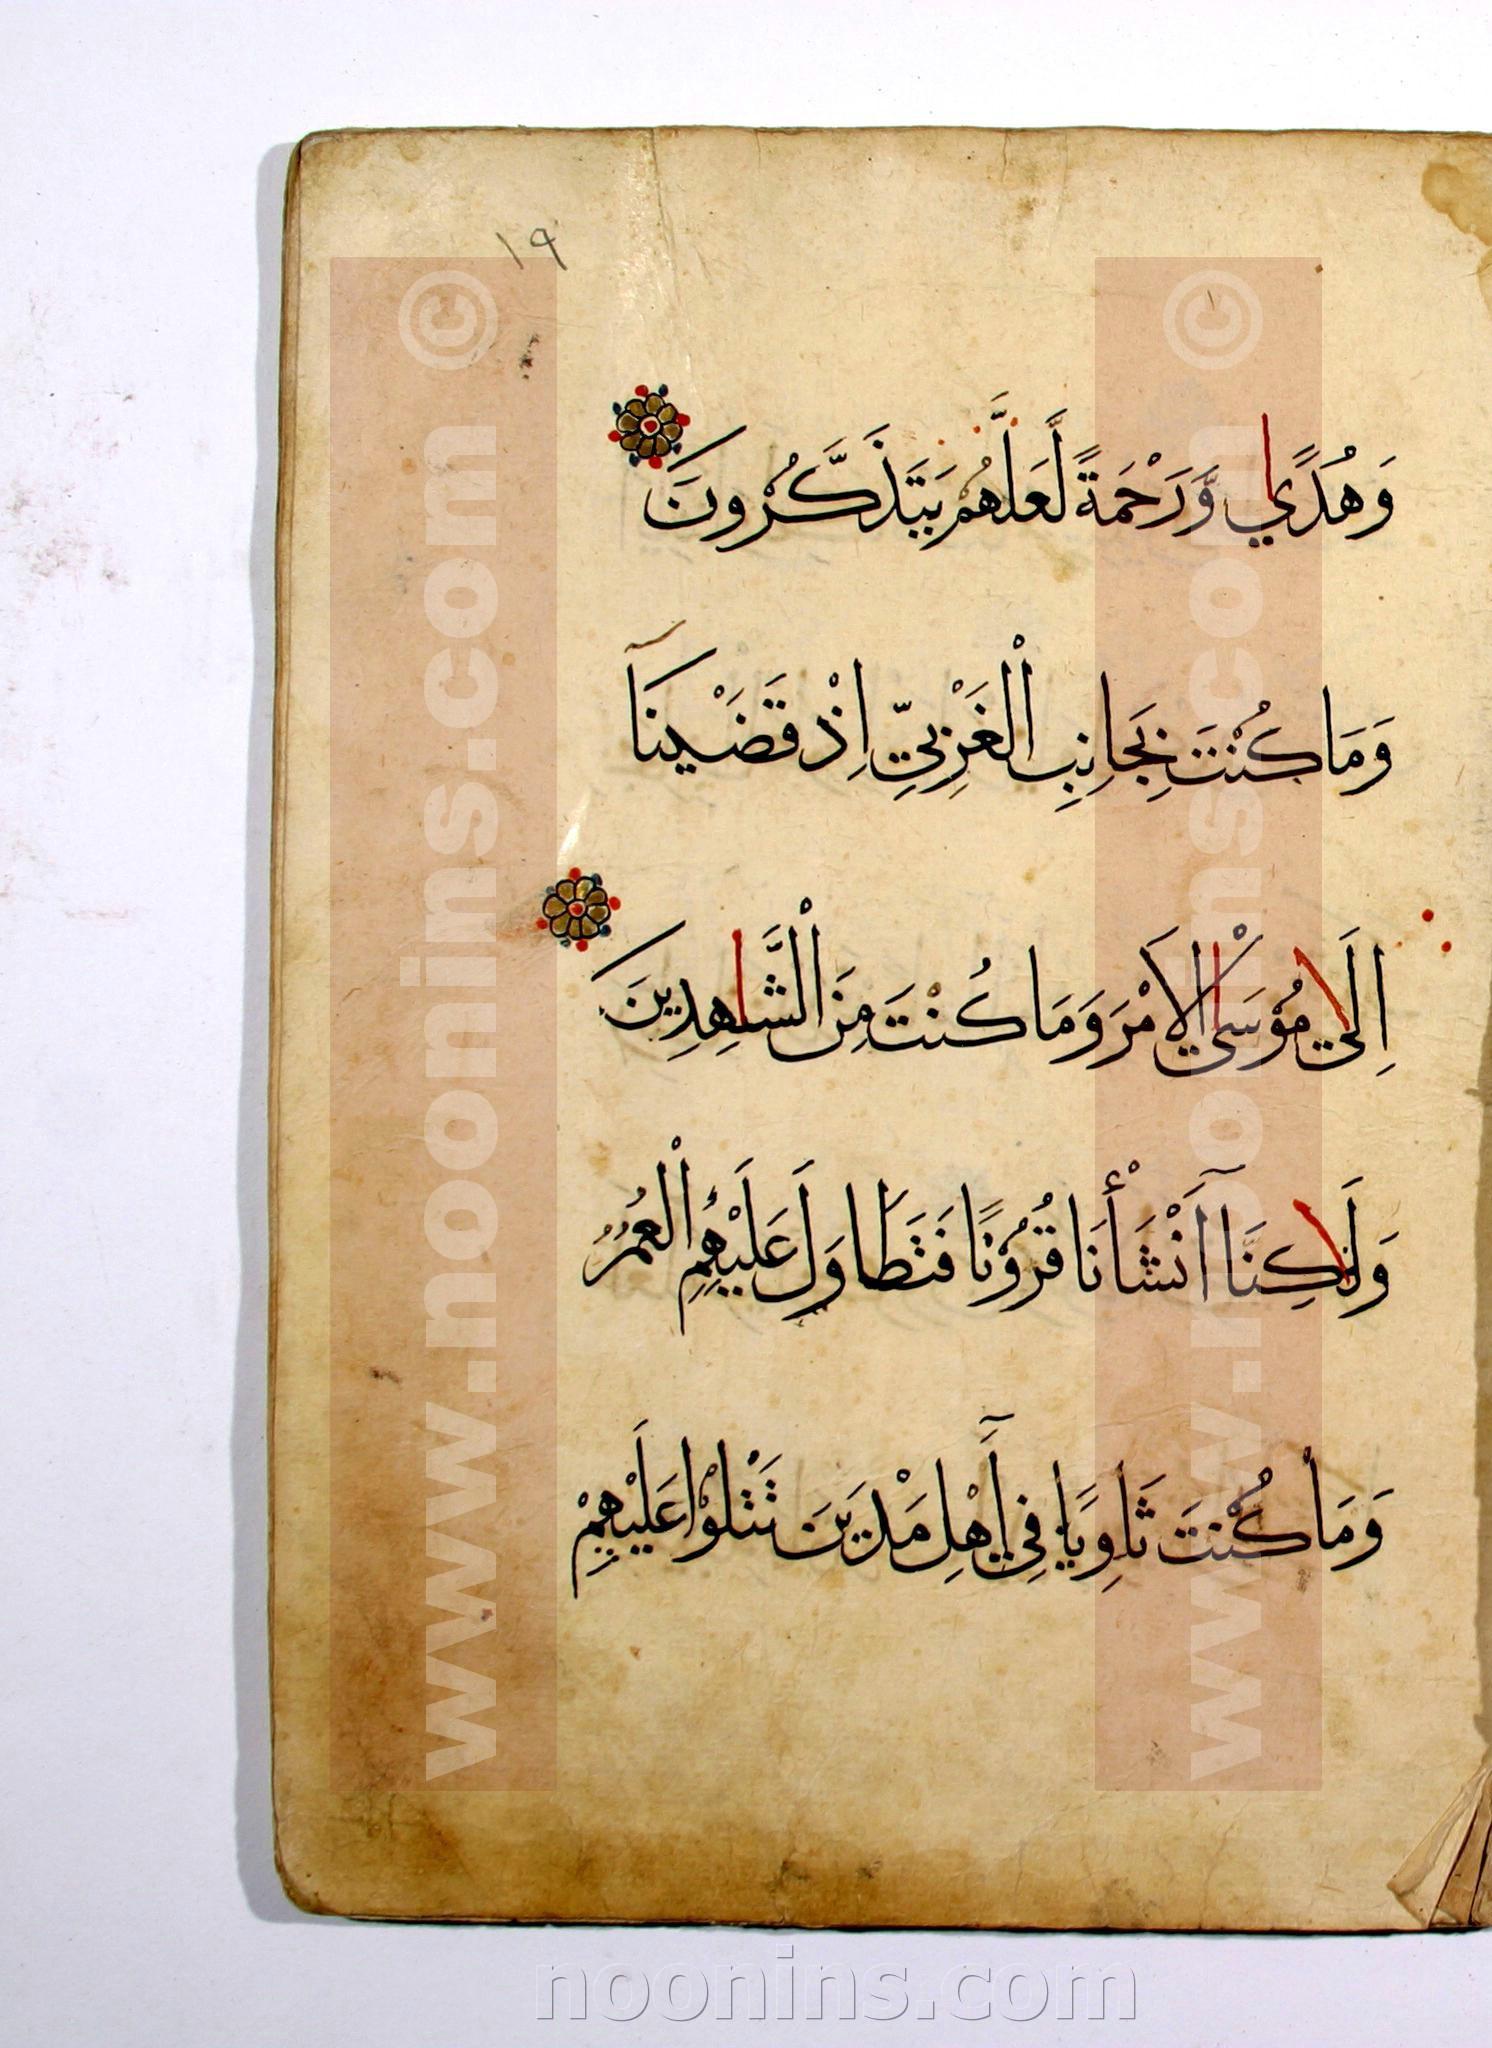 ١٩
وَهُدًي وَّرَحْمَةً لَّعَلَّهُمْ يَتَذَكَّرُونَ
وَمَا كُنْتَ بِجَانِبِ الْغَرْبِيِّ اِذْ قَضَيْنَآ
اِلَي مُوْسَي الْاَمْرَ وَمَا كُنْتَ مِنَ الْشَّاهِدِينَ
وَلَاكِنَّآ اَنْشَأْنَا قُرُوْنًا فَتَطَاوَلَ عَلَيْهِمُ الْعُمُرُ
وَمَا كُنْتَ ثَاوِيًا فِي اَهْلِ مَدْيَنَ تَتْلُوْا عَلَيْهِمْ
www.noonins.com ©
www.noonins.com ©
noonins.com